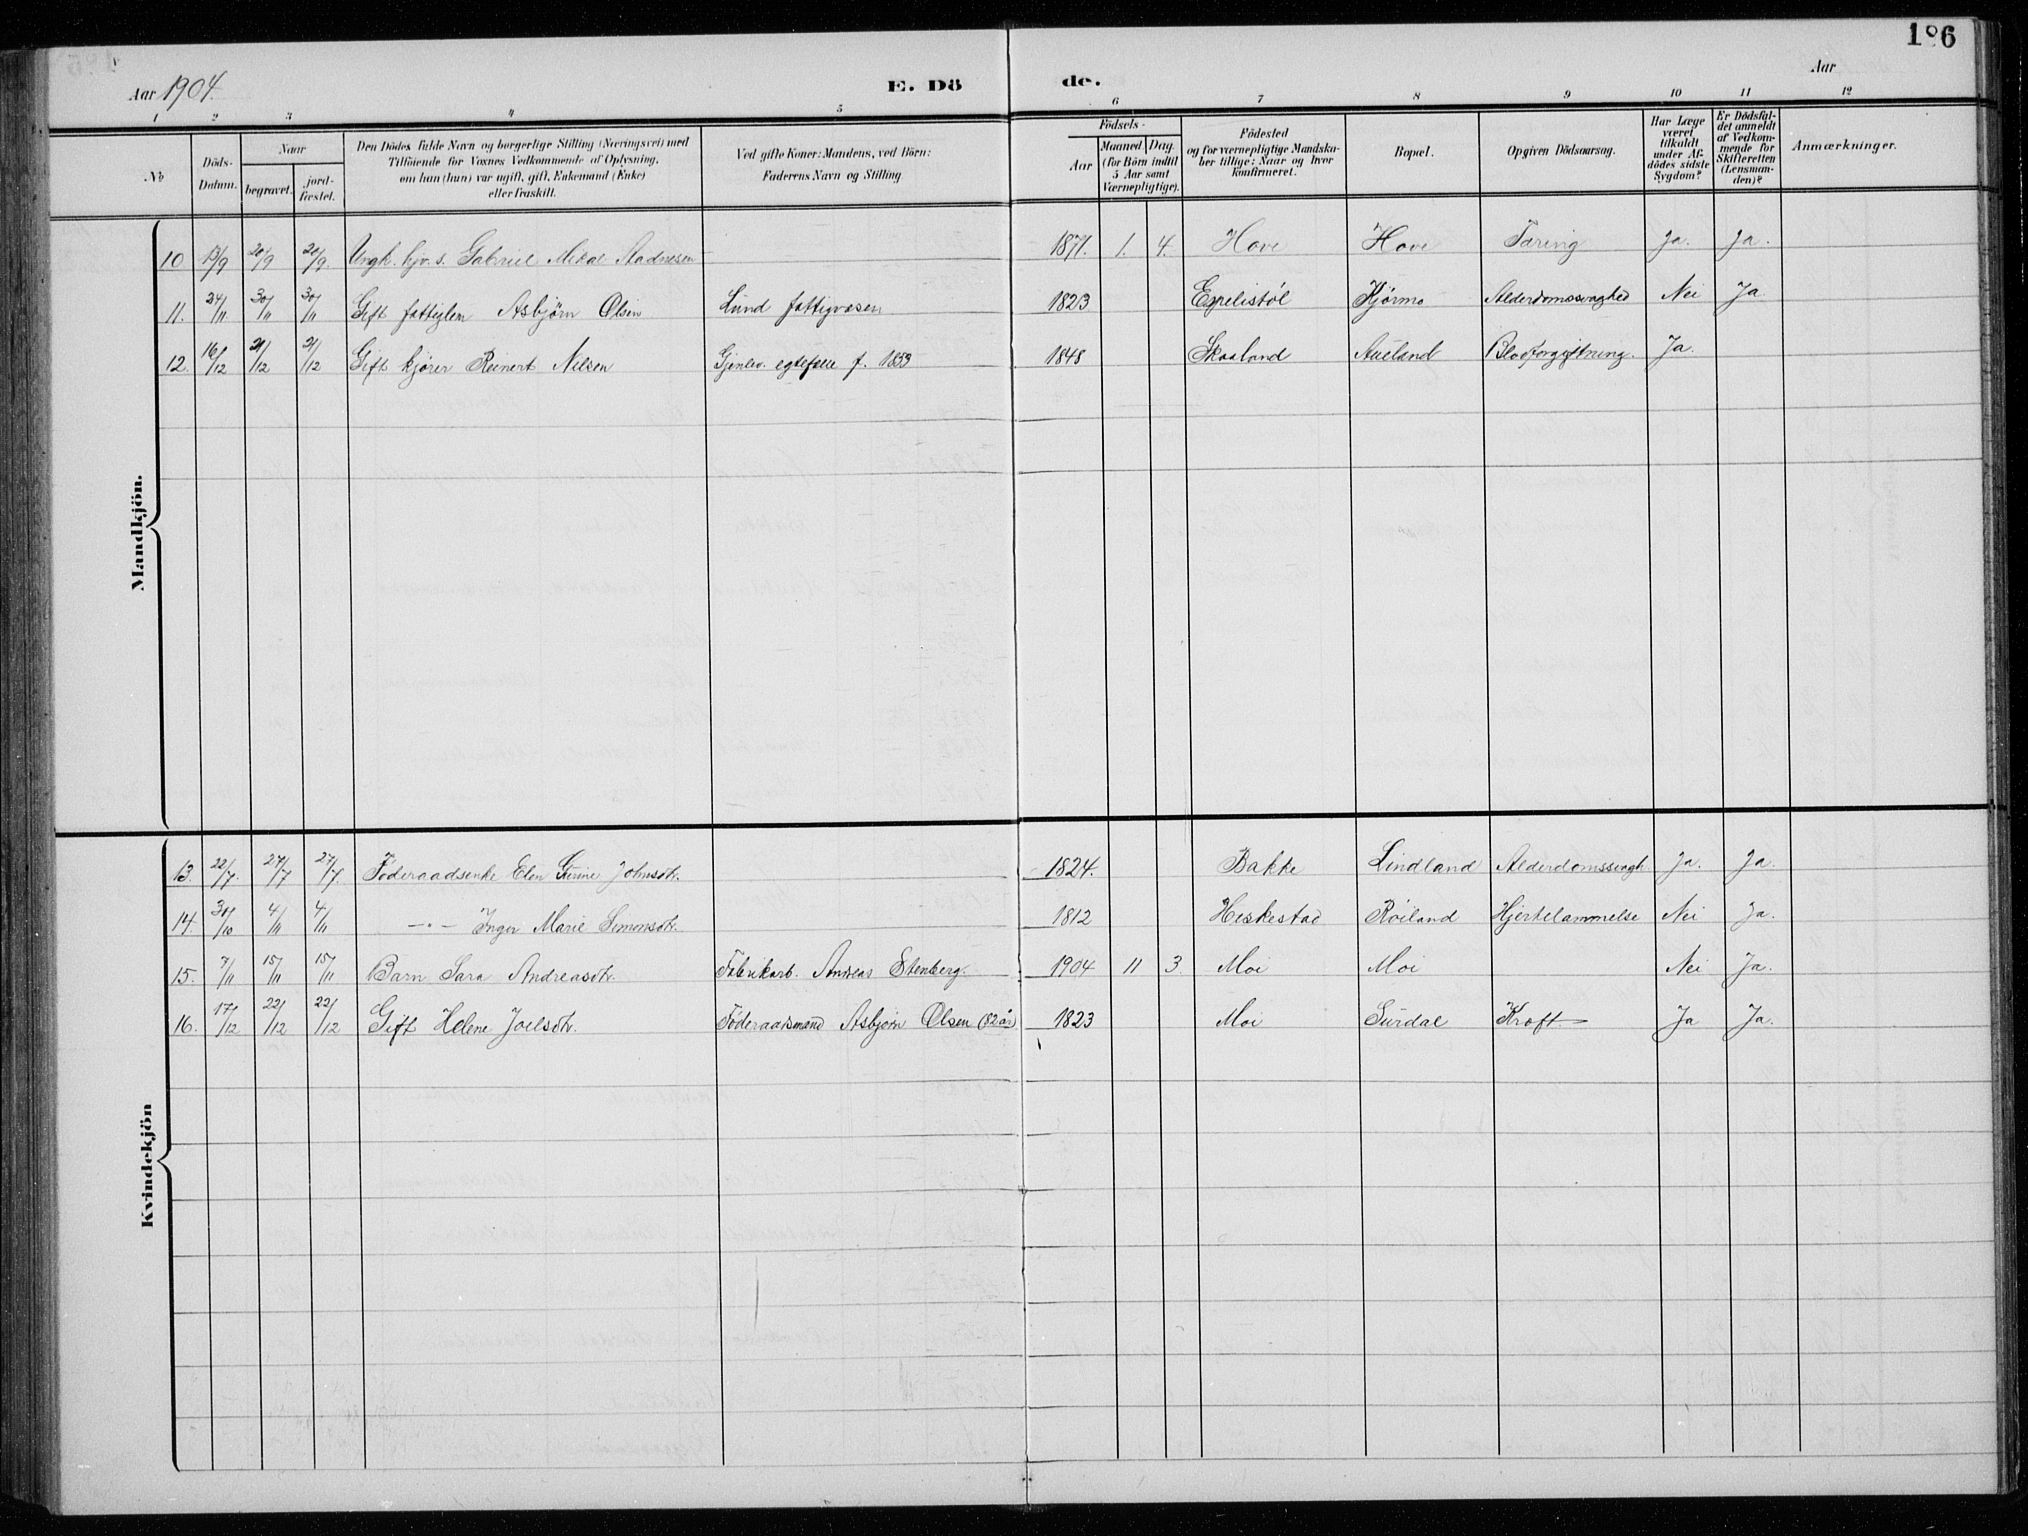 186
Aar 1904. E. Dö de. Aar
1 2 3 4 5 6 7 8 9 10 11 12
No
Döds-Datum.
Naar
begravet. jord-fæstet.
Den Dödes fulde Navn og borgerlige Stilling (Næringsvei) med
Tilföiende for Voxnes Vedkommende af Oplysning,
om han (hun) var ugift, gift, Enkemand (Enke)
eller fraskilt.
Ved gifte Koner: Mandens, ved Börn:
Faderens Navn og Stilling
Födsels-
Aar
Maaned Dag.
(for Börn indtil
5 Aar samt
Værnepligtige).
Födested
og for værnepligtige Mandska-
ber tillige: Naar og hvor
konfirmeret.
Bopæl.
Opgiven Dödsaarsag.
Har Læge
været
tilkaldt
under Af-
dödes sidste
Sygdom?
Er Dödsfal-
det anmeldt
af Vedkom-
mende for
Skifteretten
(Lensman-
den)?
Anmærkninger.
Mandkjön.
10 13/9 20/9 20/9. Ungk. hjv. s. Gabriel Mikal Aadnesen 1871. 1. 4. Hove Hove Tæring Ja. Ja.
11. 24/11 30/11 30/11 Gift fattiglem Asbjørn Olsen Lund fattigvæsen 1823 Espelistøl Kjørmo Alderdomssvaghed Nei Ja
12. 16/12 21/12 21/12 Gift kjører Reinert Nilsen Gjenlev. egtefælle f. 1853 1848 Skaaland Aueland Blodforgiftning. Ja.
Kvindekjön
13. 22/7. 27/7 27/7. Føderaadsenke Elen Gurine Johnsdtr. 1824. Bakke Lindland Alderdomssvagh. Ja. Ja.
14. 30/10 4/11 4/11 —"— Inger Marie Simonsdtr. 1812 Heskestad Røiland Hjertelammelse Nei Ja.
15. 7/11 15/11 15/11 Barn Sara Andreasdtr. Fabrikarb. Andreas Stenberg. 1904 11 3. Moi Moi Nei Ja.
16. 17/12 22/12 22/12 Gift Helene Joelsdtr. Føderaadsmand Asbjørn Olsen (82 år) 1823 Moi Surdal Kræft Ja Ja.